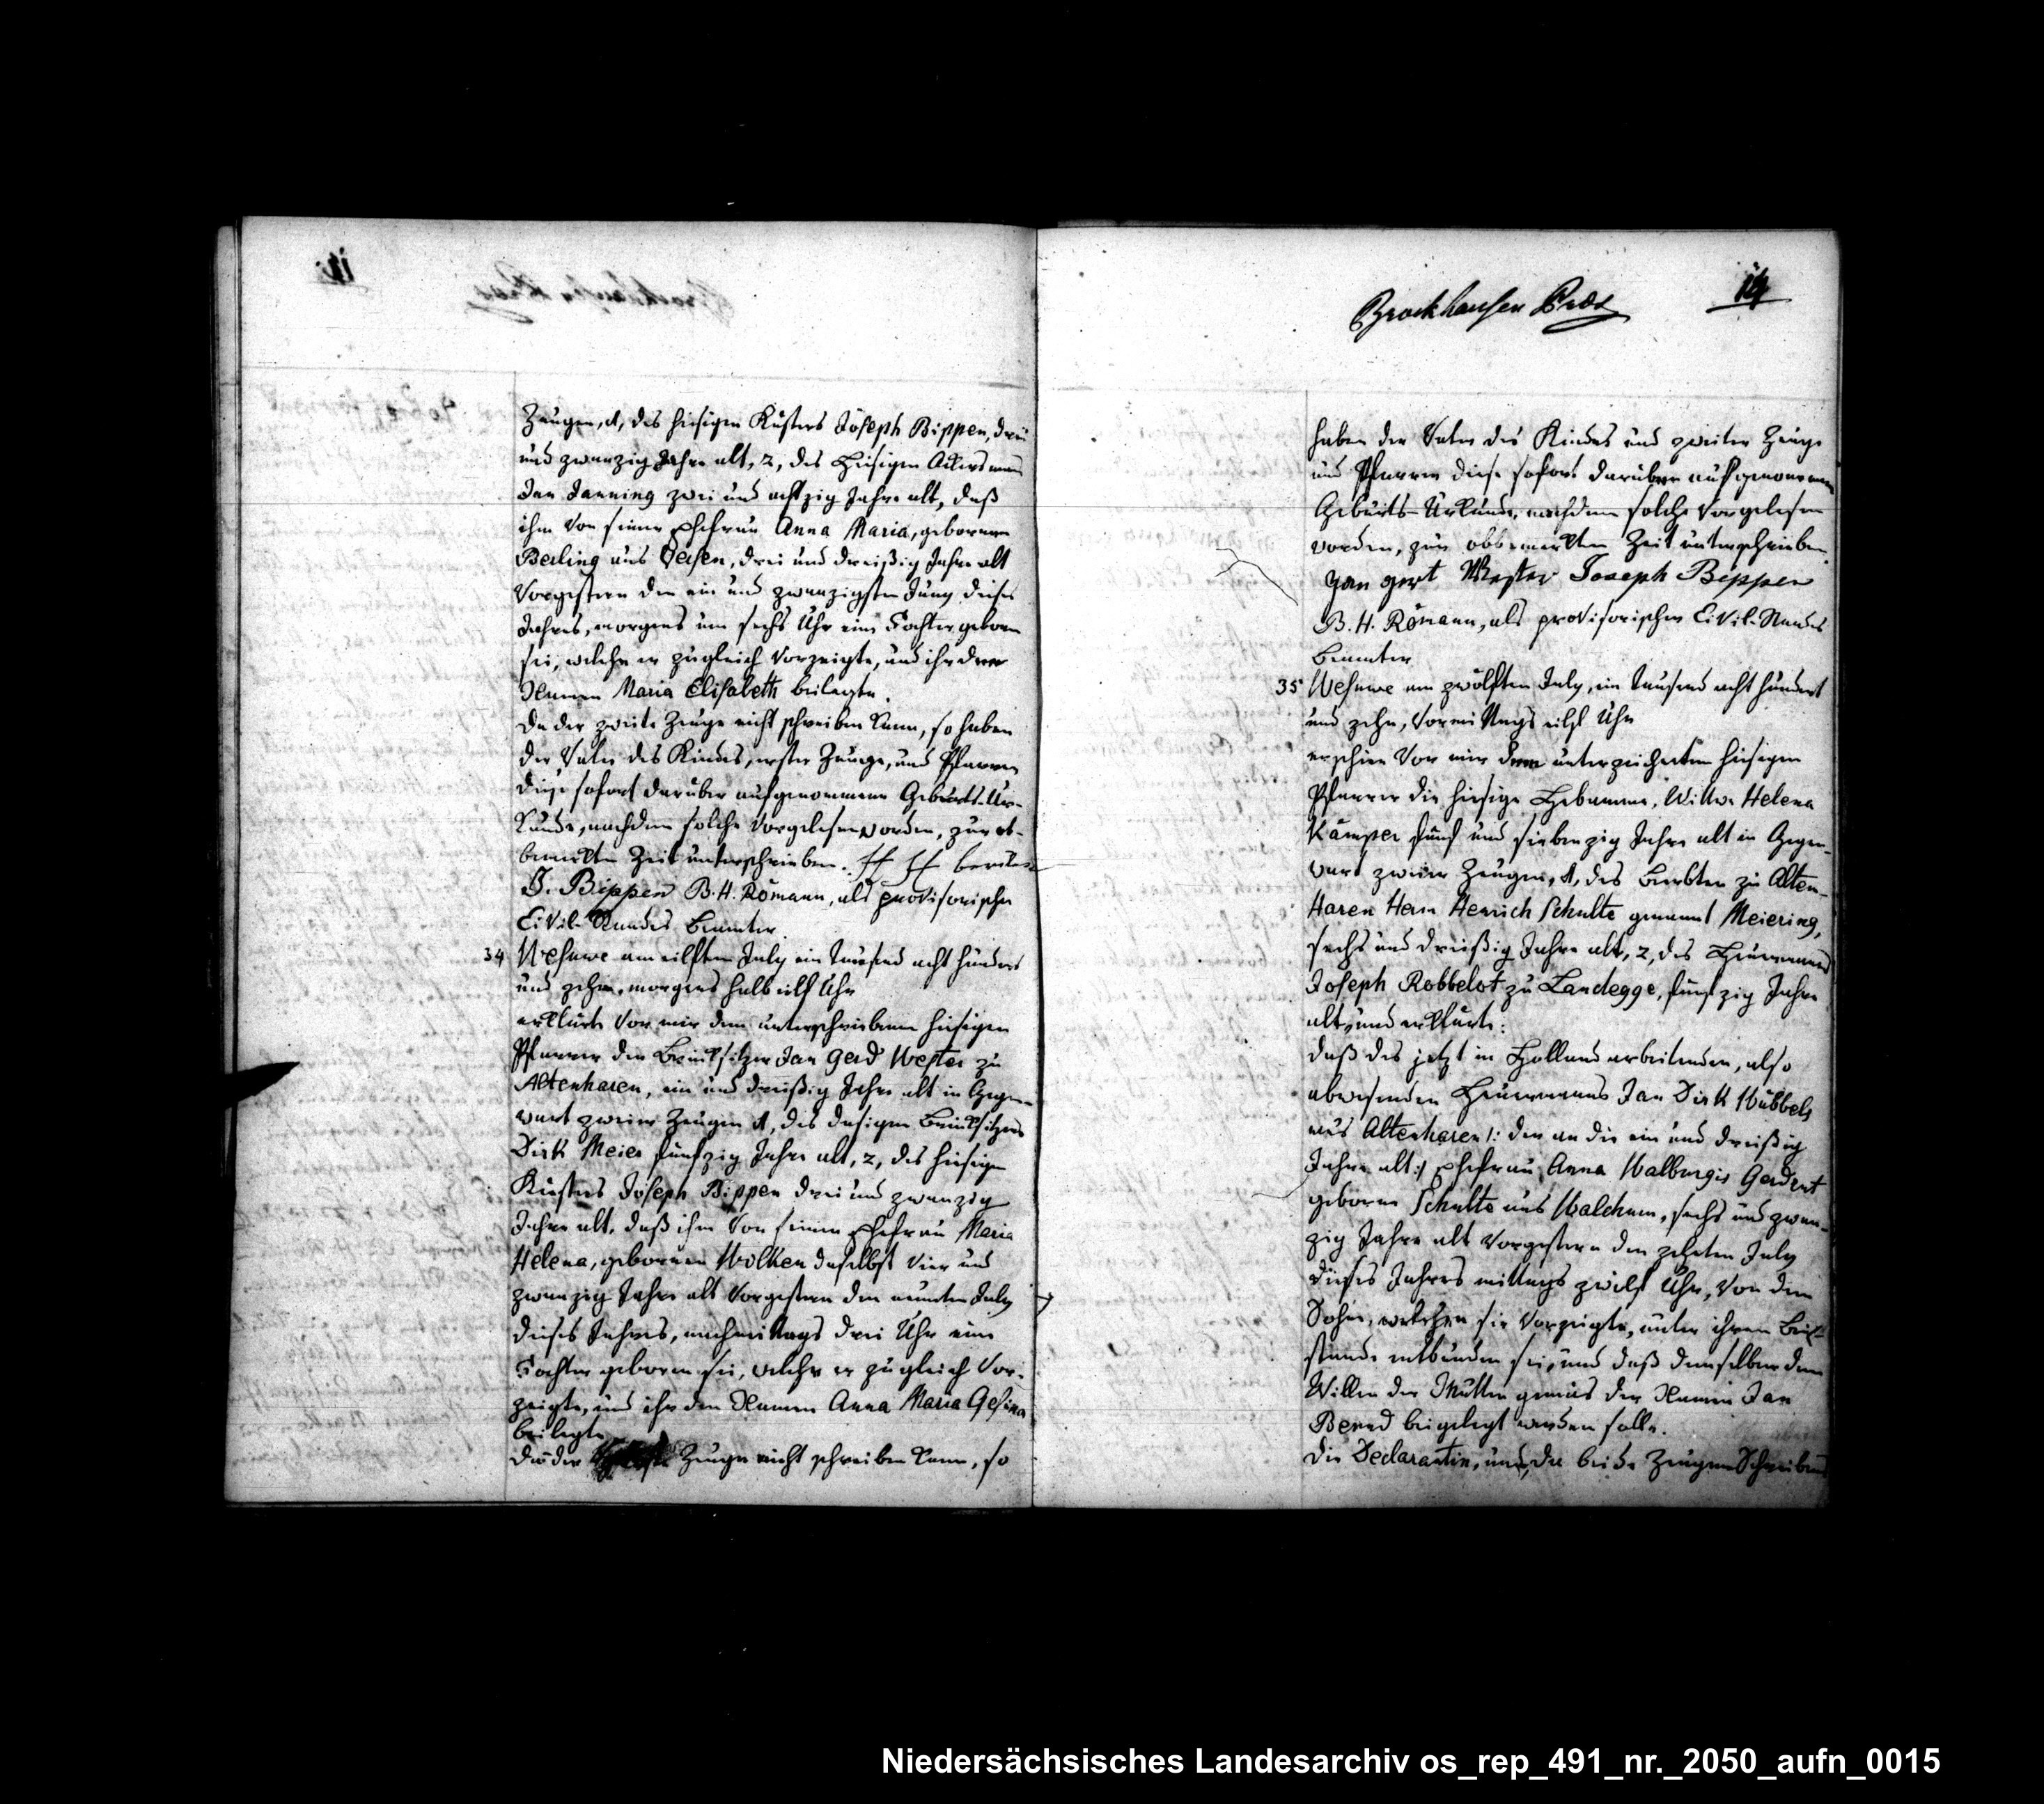 Zeugen, 1, des hiesigen Küsters Joseph Bippen, drei
und zwanzig Jahre alt, 2, des hiesigen Ackersmann
Jan Janning zwei und achtzig Jahre alt, daß
ihm von seiner Ehefrau Anna Maria, geborenen
Berling aus, drei und dreißig Jahre alt
Vorgestern den ein und zwanzigsten Juny dieses
Jahres, morgens um sechs Uhr eine Tochter geboren
sei, welche er zugleich vorzeigte, und ihr den
Namen Maria Elisabeth beilegte.
Da der zweite Zeuge nicht schreiben kann, so haben
der Vater des Kindes, erster Zeuge, und Pfarrer
diese sofort darüber aufgenommene Geburts-Ur-
kunde, nachdem solche vorgelesen worden, zur ob-
bemerkten Zeit unterschrieben.
J. Bippen B. H. Römann, als provisorischer
Civil-Standes Beamter.
34 Wesuwe am eilften July ein Tausend acht hundert
und zehn, morgens halb eilf Uhr
erklärte vor mir dem unterschriebenen hiesigen
Pfarrer der Brinksitzer Jan Gerd Wester zu
Altenharen, ein und dreißig Jahre alt in Gegen-
wart zweier Zeugen 1, des dasigen Brinksitzers
Dirk Meier fünfzig Jahre alt, 2, des hiesigen
Küsters Joseph Bippen drei und zwanzig
Jahre alt, daß ihm von seiner Ehefrau Maria
Helena, geborenen Wolken daselbst vier und
zwanzig Jahre alt vorgestern den neunten July
dieses Jahres, nachmittags drei Uhr eine
Tochter geboren sei, welche er zugleich vor-
zeigte, und ihr den Namen Anna Maria Gesina
beilegte
Da der Zeuge nicht schreiben kann, so
Brockhausen Präs
14
haben der Vater des Kindes und zweiter Zeuge
und Pfarrer diese sofort darüber aufgenommene
Geburts-Urkunde, nachdem solche vorgelesen
worden, zur obbemerkten Zeit unterschrieben.
Jan gert Wester Joseph Bippen
B. H. Römann, als provisorischer Civil-Standes
Beamter
35 Wesuwe am zwölften July, ein Tausend acht hundert
und zehn, Vormittags eilf Uhr
erschien vor mir dem unterzeichneten hiesigen
Pfarrer die hiesige Hebamme, Wittwe Helena
Kämper fünf und siebenzig Jahre alt in Gegen-
wart zweier Zeugen, 1, des Beerbten zu Alten-
Haren Herm Henrich Schulte genannt Meiering,
sechs und dreißig Jahre alt, 2, des Heuermanns
Joseph Robbelot zu Landegge, fünfzig Jahre
alt, und erklärte:
daß des jetzt in Holland arbeitenden, also
abwesenden Heuermanns Jan Dirk Wübbels
aus Altenharen /: der an die ein und dreißig
Jahre alt :/ Ehefrau Anna Walburgis Gerdrut
geborene Schulte aus Walchum, sechs und zwan-
zig Jahre alt vorgestern den zehnten July
dieses Jahres mittags zwölf Uhr, von dem
Sohne, welchen sie vorzeigte, unter ihrem Bei-
stande entbunden sei, und daß demselben dem
Willen der Mutter gemäs der Namen Jan
Berend beigelegt werden solle.
Die Declarantin, und die beide Zeugen Schreibens